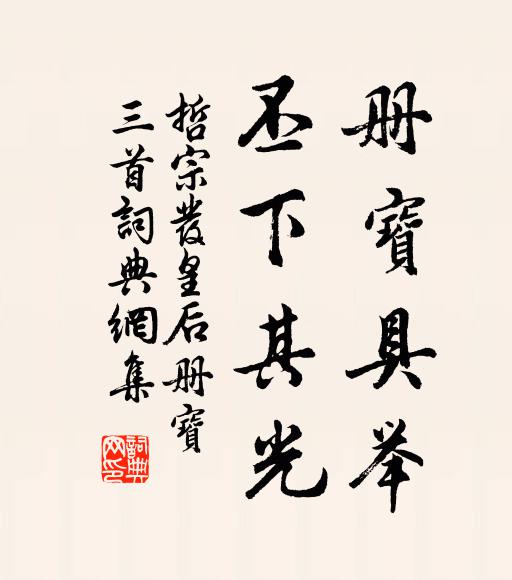 册寶具举
丕下其光
哲宗發皇后册寶
三首詞典網集
詞典網印